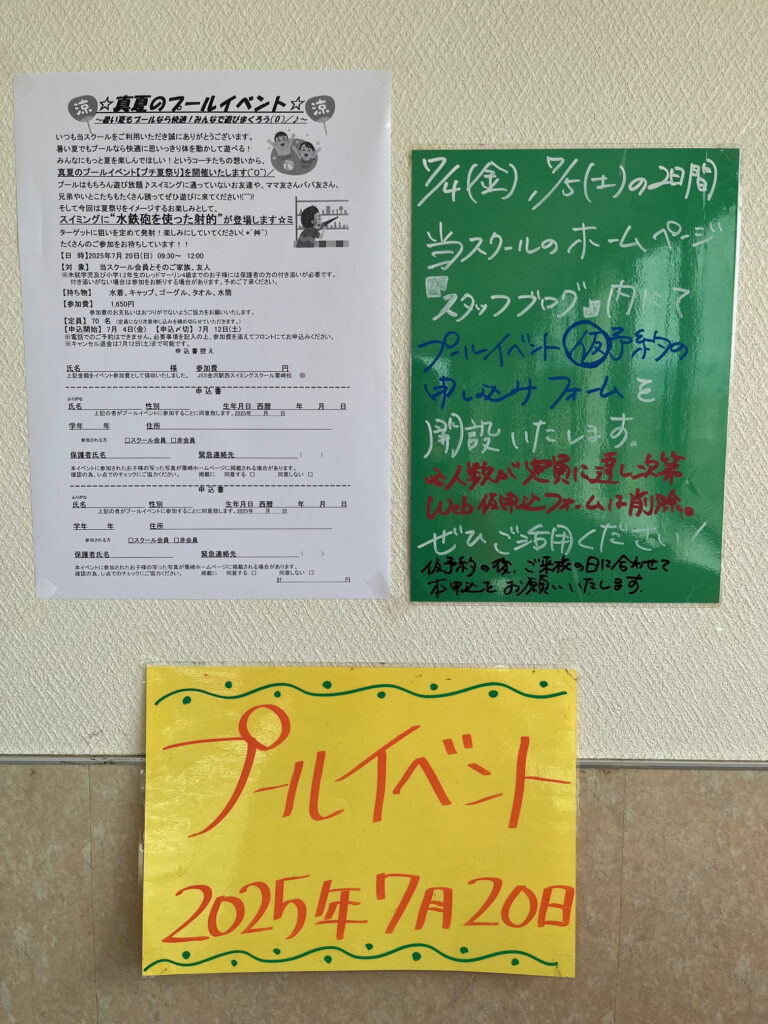 涼
☆真夏のプールイベント☆
涼
～暑い夏もプールなら快適！みんなで遊びまくろう(^0^)／♪～
いつも当スクールをご利用いただき誠にありがとうございます。
暑い夏でもプールなら快適に思いっきり体を動かして遊べる！
みんなにもっと夏を楽しんでほしい！というコーチたちの想いから、
真夏のプールイベント【プチ夏祭り】を開催いたします(^O^)／
プールはもちろん遊び放題♪スイミングに通っていないお友達や、ママ友さんパパ友さん、
兄弟やいとこたちもたくさん誘ってぜひ遊びに来てください(^^)!
そして今回は夏祭りをイメージするお楽しみとして、
スイミングに“水鉄砲を使った射的”が登場します☆ミ
ターゲットに狙いを定めて発射！楽しみにしていてください(*´艸`)
たくさんのご参加をお待ちしています！！
【日 時】2025年7月 20日(日) 09:30～ 12:00
【対 象】 当スクール会員とそのご家族、友人
※未就学児及び小学1.2年生のレッドマーリン4級までのお子様には保護者の方の付き添いが必要です。
付き添いがない場合は参加をお断りする場合があります。予めご了承ください。
【持ち物】 水着、キャップ、ゴーグル、タオル、水筒
【参加費】 1,650円
参加費のお支払いはおつりがでないようご協力をお願いいたします。
【定員】70 名 (定員になり次第申し込みを締め切らせていただきます。)
【申込開始】7月 4日(金) 【申込〆切】7月 12日(土)
※電話でのご予約はできません。必要事項を記入の上、参加費を添えてフロントにてお申込みください。
※キャンセル返金は7月12日(土)まで可能です。
申込書控え
氏名 様 参加費 円
上記金額をイベント参加費として領収いたしました。 JSS金沢駅西スイミングスクール粟崎校 ㊞
申込書
ふりがな
氏名 性別 生年月日 西暦 年 月 日
上記の者がプールイベントに参加することに同意致します。2025年 月 日
学年 年 住所
参加される方 □スクール会員 □非会員
保護者氏名 緊急連絡先 ( )
本イベントに参加されたお子様の写った写真が粟崎ホームページに掲載される場合があります。
確認の為、レ点でのチェックにご協力ください。 掲載に 同意する □ 同意しない □
申込書
ふりがな
氏名 性別 生年月日 西暦 年 月 日
上記の者がプールイベントに参加することに同意致します。2025年 月 日
学年 年 住所
参加される方 □スクール会員 □非会員
保護者氏名 緊急連絡先 ( )
本イベントに参加されたお子様の写った写真が粟崎ホームページに掲載される場合があります。
確認の為、レ点でのチェックにご協力ください。 掲載に 同意する □ 同意しない □
計 円
7/4(金),7/5(土)の2日間
当スクールのホームページ
スタッフブログ内にて
プールイベント仮予約の
申し込みフォームを
開設いたします。
※人数が定員に達し次第
Web仮申込フォームは削除。
ぜひご活用ください！
仮予約の後、ご来校の日に合わせて
本申込をお願いいたします。
プールイベント
2025年7月20日